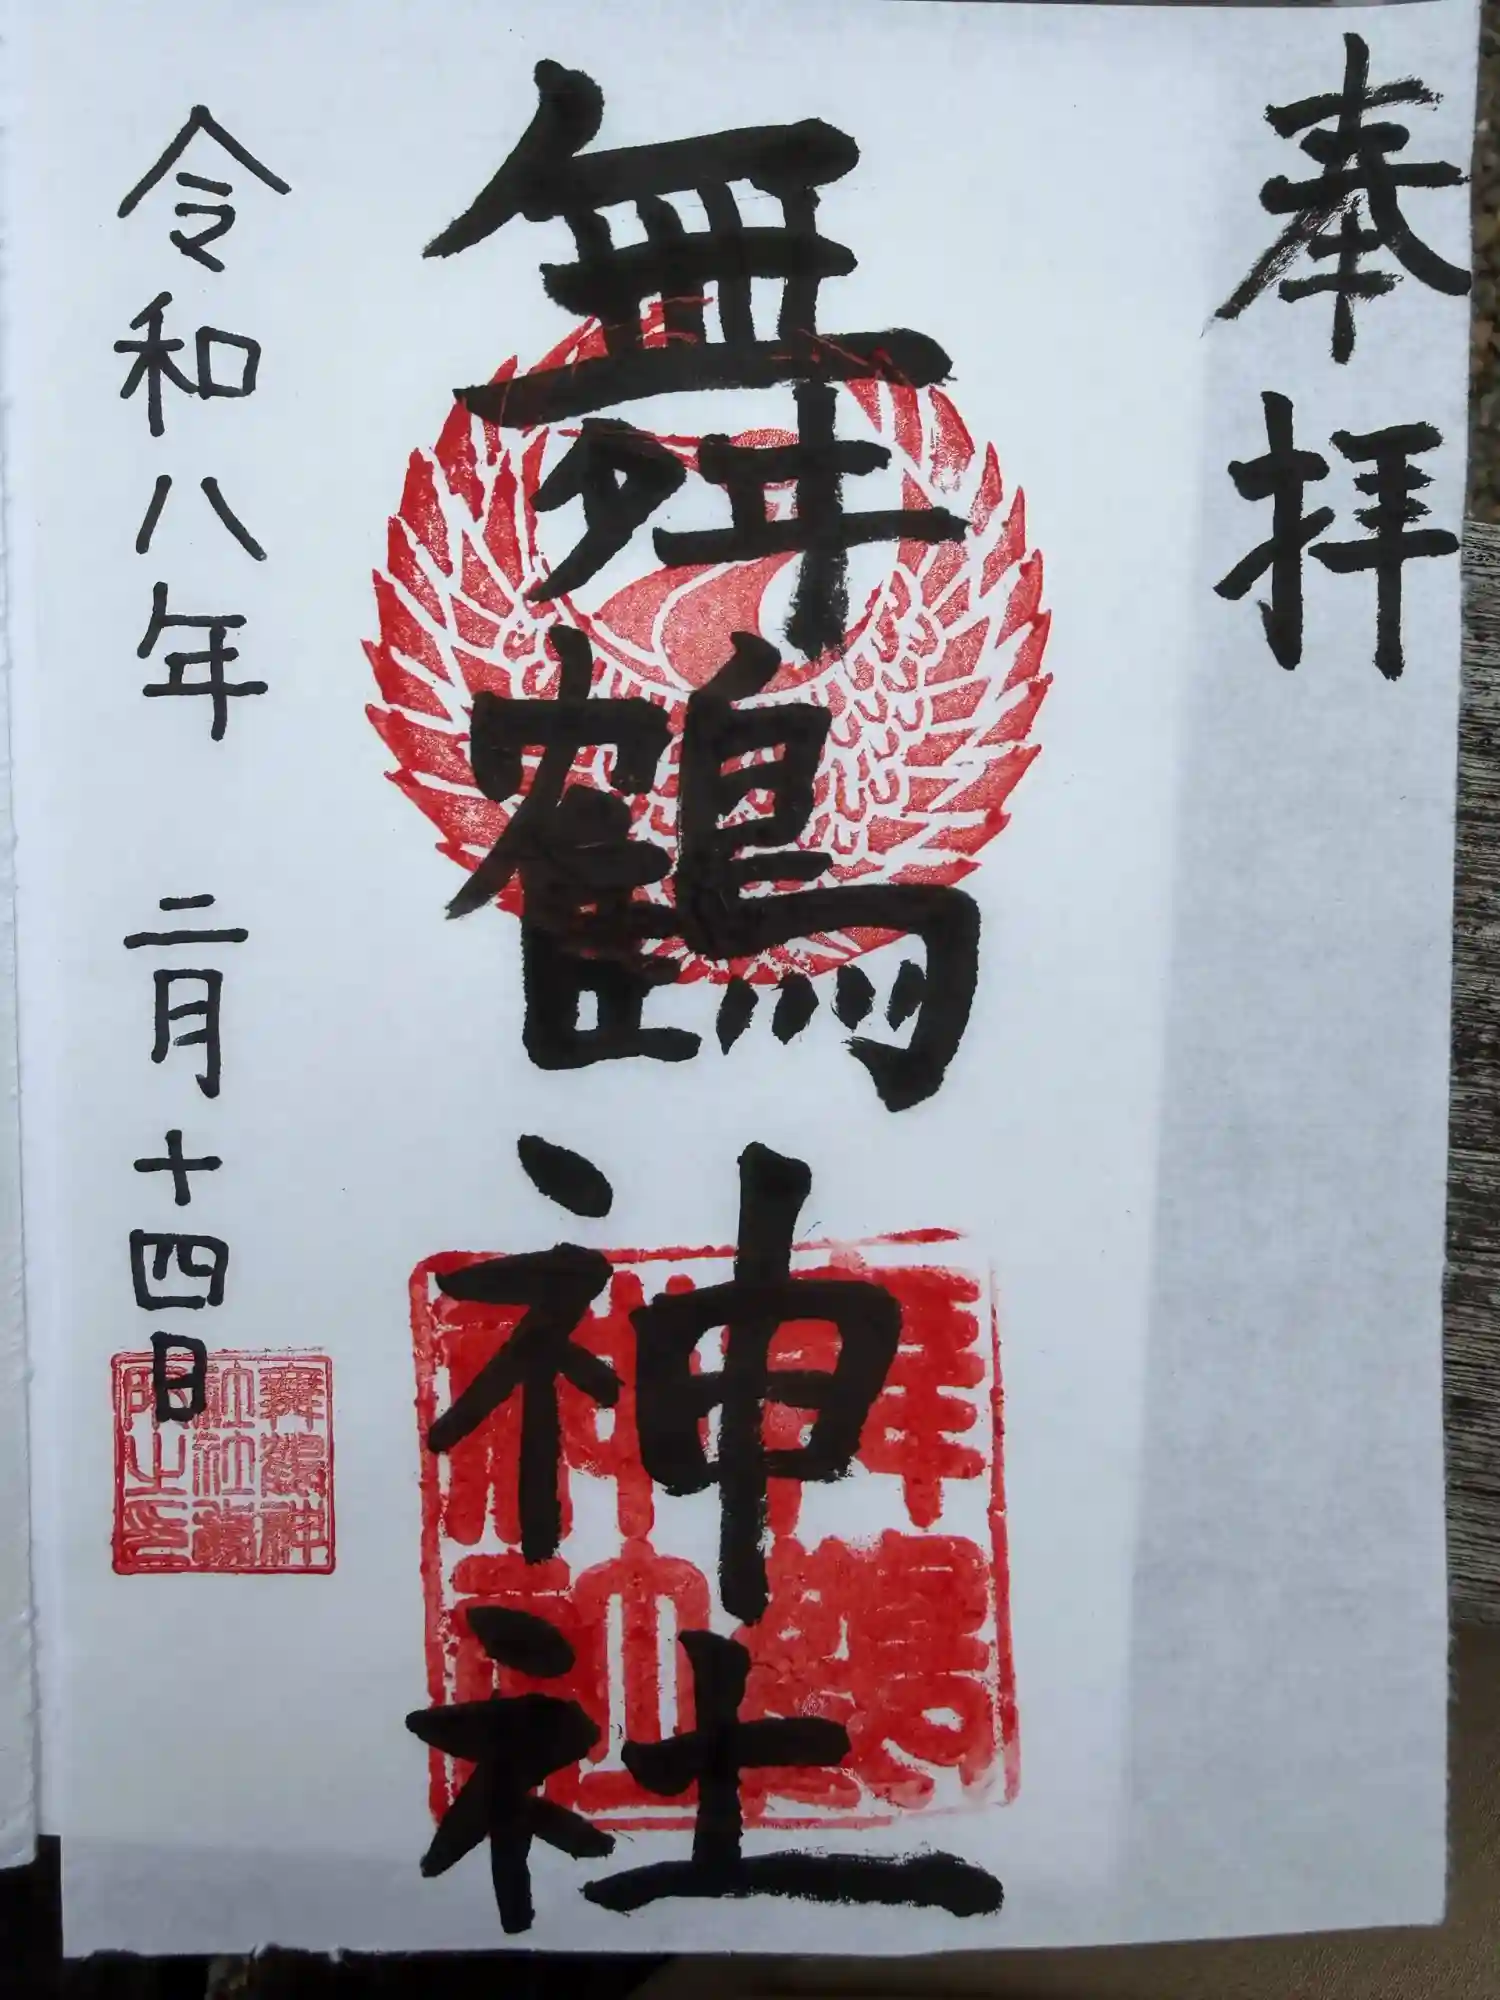 奉拝
舞鶴神社
令和八年 二月十四日
舞鶴神社
舞鶴神
社社務
所之印